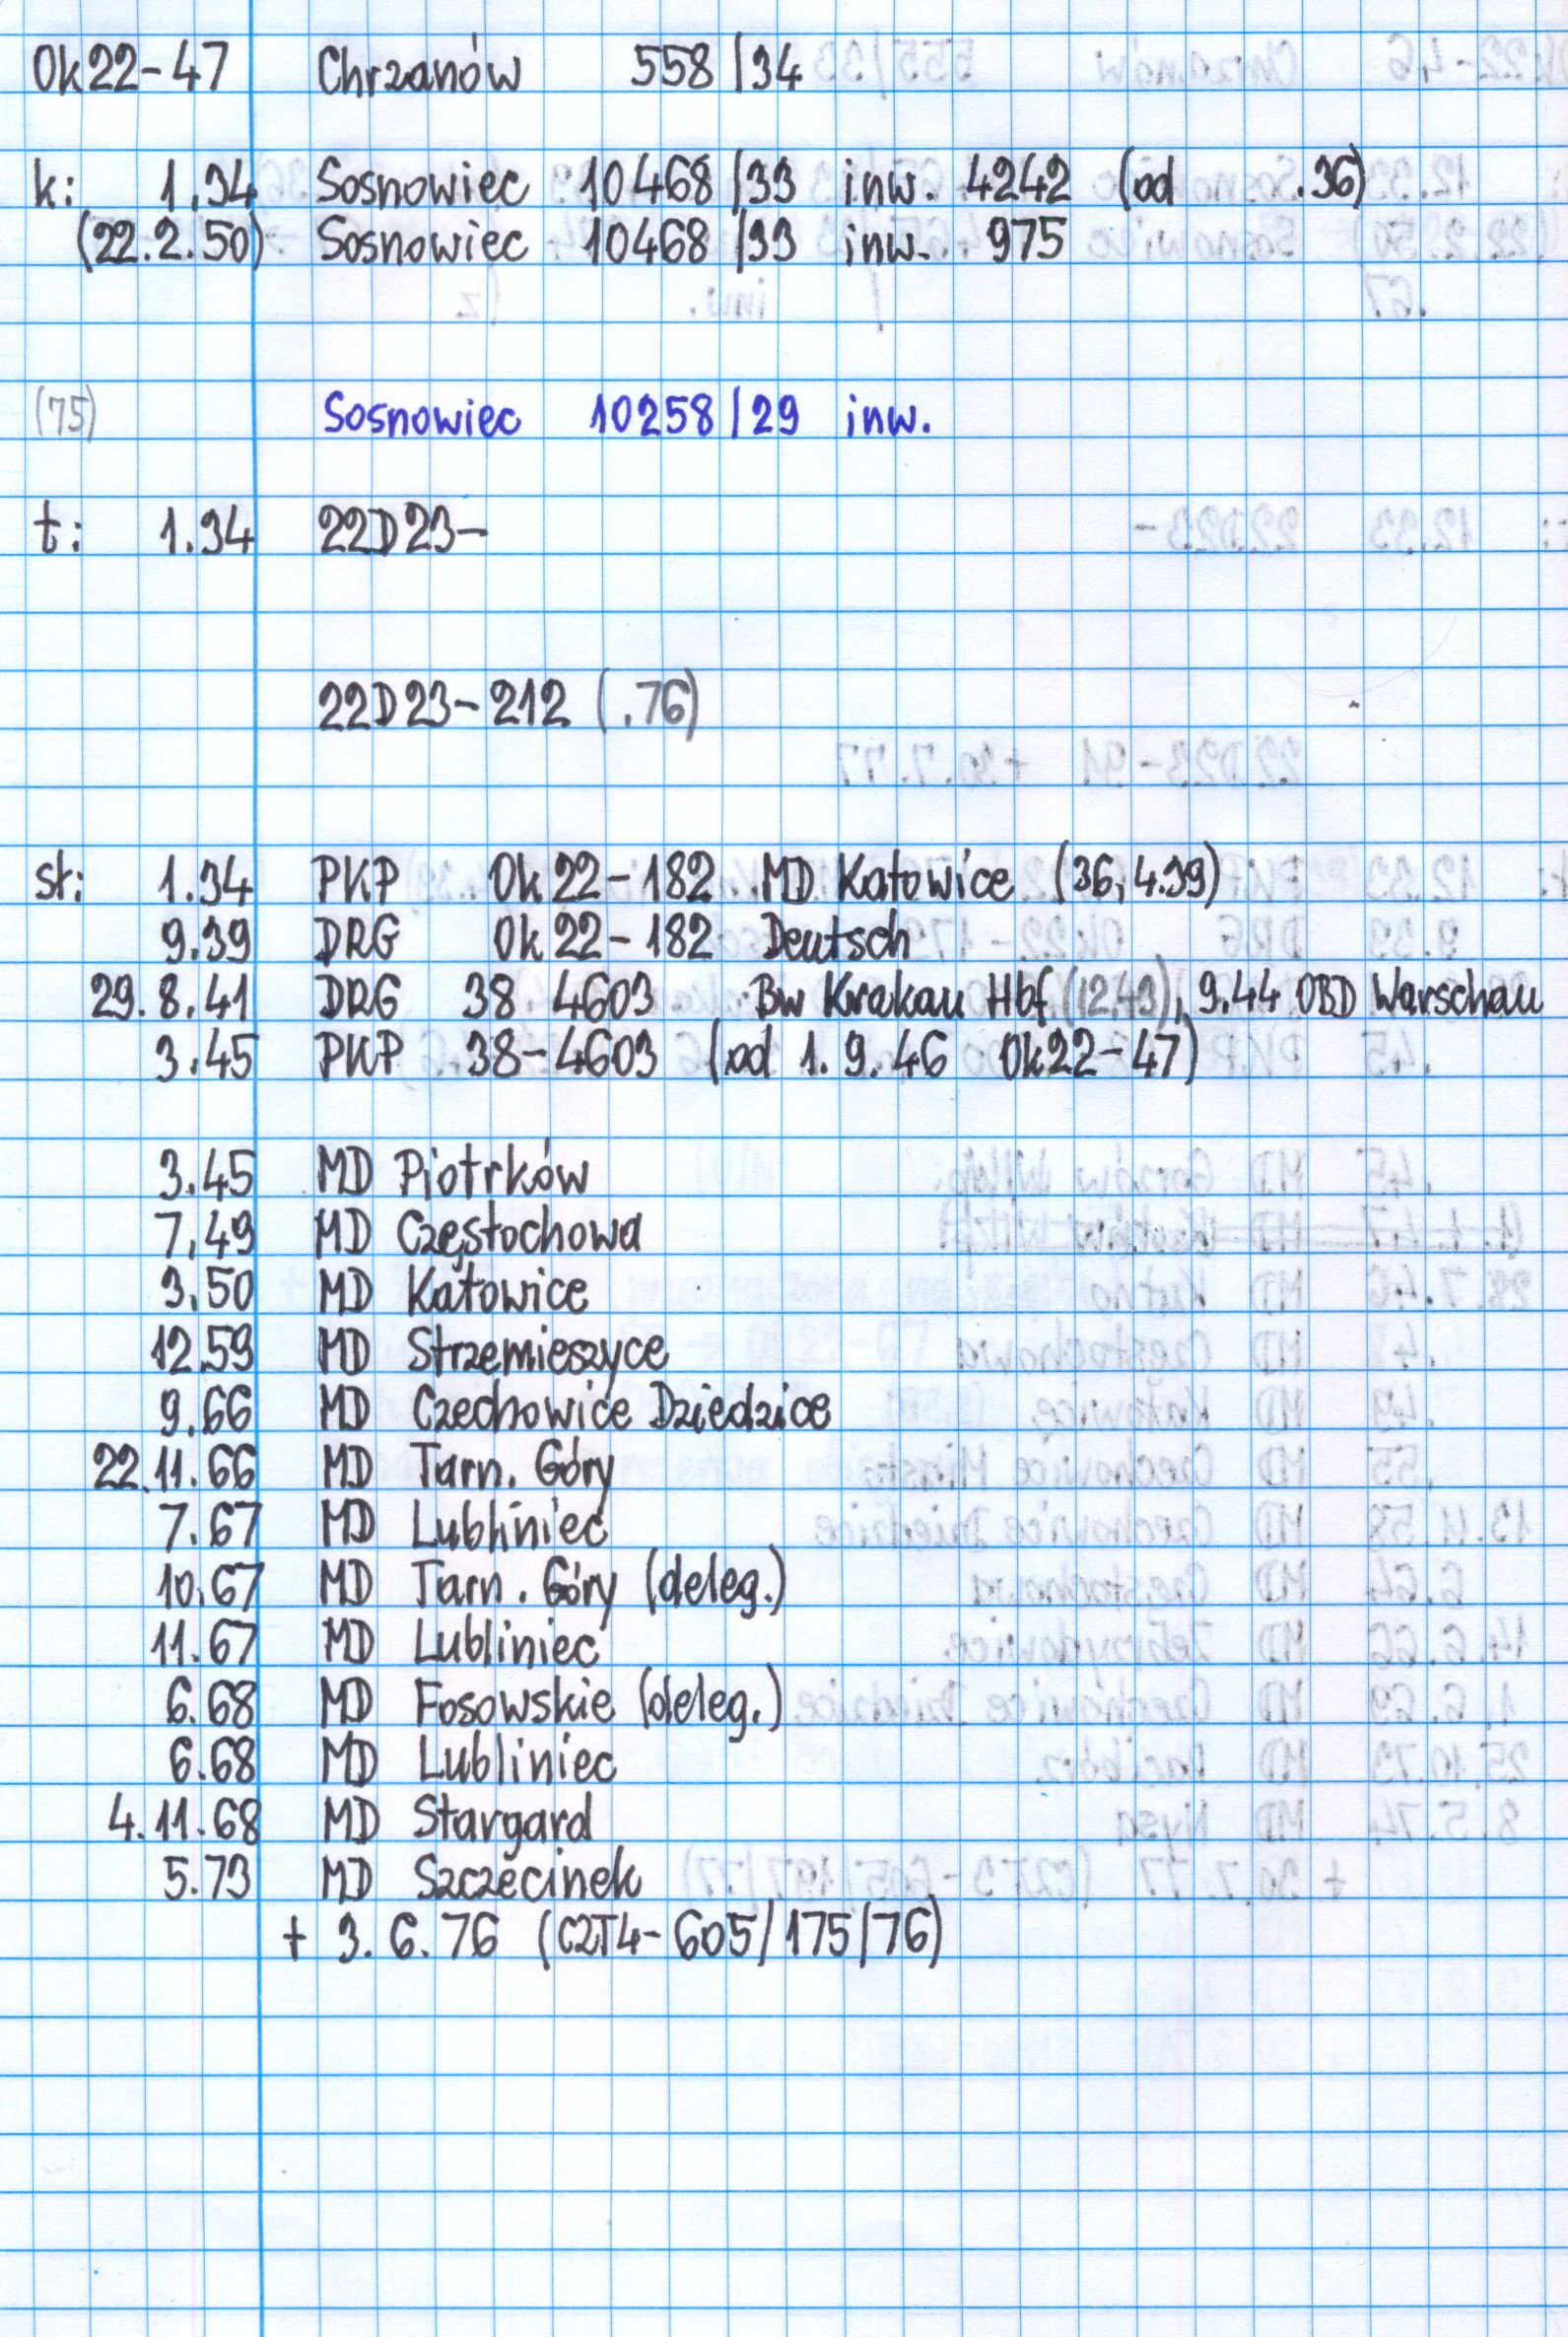 Ok22-47 Chrzanów 558/34
k: 1.34 Sosnowiec 10468/33 inw. 4242 (od .36)
(22.2.50) Sosnowiec 10468/33 inw. 975
(75) Sosnowiec 10258/29 inw.
t: 1.34 22D23-
22D23-212 (.76)
st: 1.34 PKP Ok22-182 MD Katowice (36, 4.39)
9.39 DRG Ok22-182 Deutsch
29.8.41 DRG 38 4603 Bw Krakau Hbf (12.43), 9.44 OBD Warschau
3.45 PKP 38-4603 (od 1.9.46 Ok22-47)
3.45 MD Piotrków
7.49 MD Częstochowa
3.50 MD Katowice
12.59 MD Strzemieszyce
9.66 MD Czechowice Dziedzice
22.11.66 MD Tarn. Góry
7.67 MD Lubliniec
10.67 MD Tarn. Góry (deleg.)
11.67 MD Lubliniec
6.68 MD Fosowskie (deleg.)
6.68 MD Lubliniec
4.11.68 MD Stargard
5.73 MD Szczecinek
+ 3.6.76 (C2T4-605/175/76)